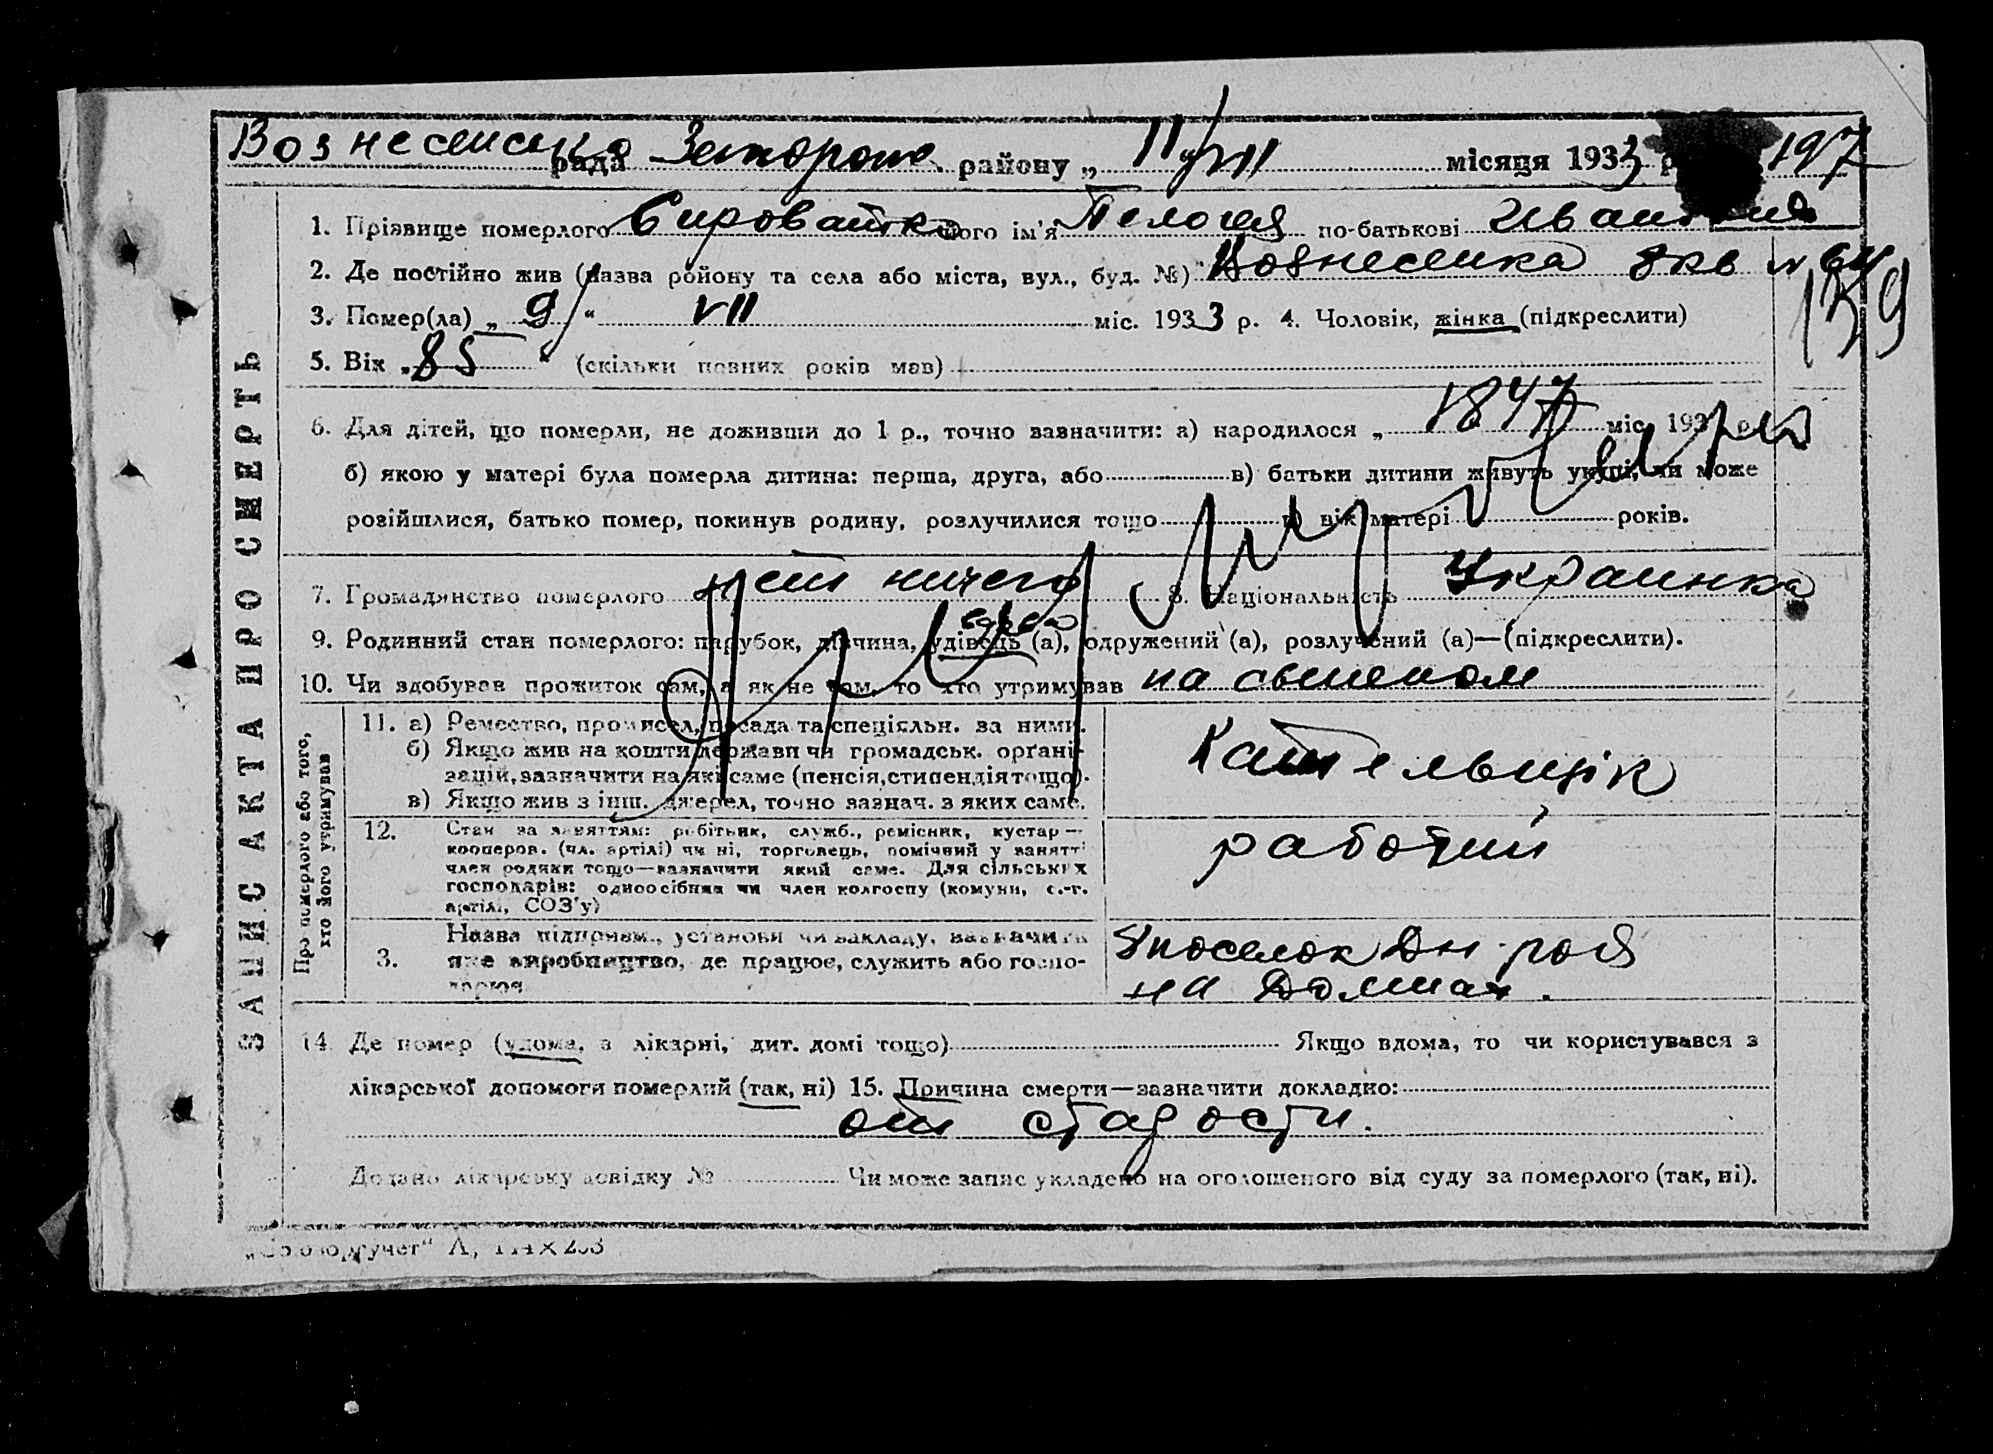 Вознесенська рада Запорож. району „ 11/VII місяця 1933 р 197
1. Прізвище померлого Сироватка його ім'я Пелогея по-батькові Ивановна
2. Де постійно жив (назва району та села або міста, вул., буд. №) Вознесенка 8 кв № 64
139
3. Помер(ла) „ 9 “ VII міс. 1933 р. 4. Чоловік, жінка (підкреслити)
5. Вік „ 85 “ (скільки повних років мав)
6. Для дітей, що померли, не доживши до 1 р., точно зазначити: а) народилося „ 1847 міс. 193 р.
б) якою у матері була померла дитина: перша, друга, або в) батьки дитини живуть укупі, чи може
розійшлися, батько помер, покинув родину, розлучилися тощо г) вік матері років.
7. Громадянство померлого нет ничего 8. Національність Украинка
9. Родинний стан померлого: парубок, дівчина, удівець (а), одружений (а), розлучений (а)—(підкреслити).
вдова
10. Чи здобував прожиток сам, а як не сам, то хто утримував на
ЗАПИС АКТА ПРО СМЕРТЬ
Про померлого або того, хто його утримував
11. а) Ремество, промисел, посада та спеціяльн. за ними.
б) Якщо жив на кошти держави чи громадськ. органі-
зацій, зазначити на які саме (пенсія, стипендія тощо).
в) Якщо жив з інш. джерел, точно зазнач. з яких саме.
12. Стан за заняттям: робітник, служб., ремісник, кустар—
кооперов. (чл. артілі) чи ні, торговець, помічний у занятті
член родини тощо—зазначити який саме. Для сільських
господарів: одноосібник чи член колгоспу (комуни, с.-г.
артілі, СОЗ'у)
рабочий
3. Назва підприєм., установи чи закладу, зазначити
яке виробництво, де працює, служить або госпо-
дарює
поселок
на Домнах.
14. Де помер (удома, в лікарні, дит. домі тощо) Якщо вдома, то чи користувався з
лікарської допомоги померлий (так, ні) 15. Причина смерти—зазначити докладно:
от старости.
Додано лікарську довідку № Чи може запис укладено на оголошеного від суду за померлого (так, ні).